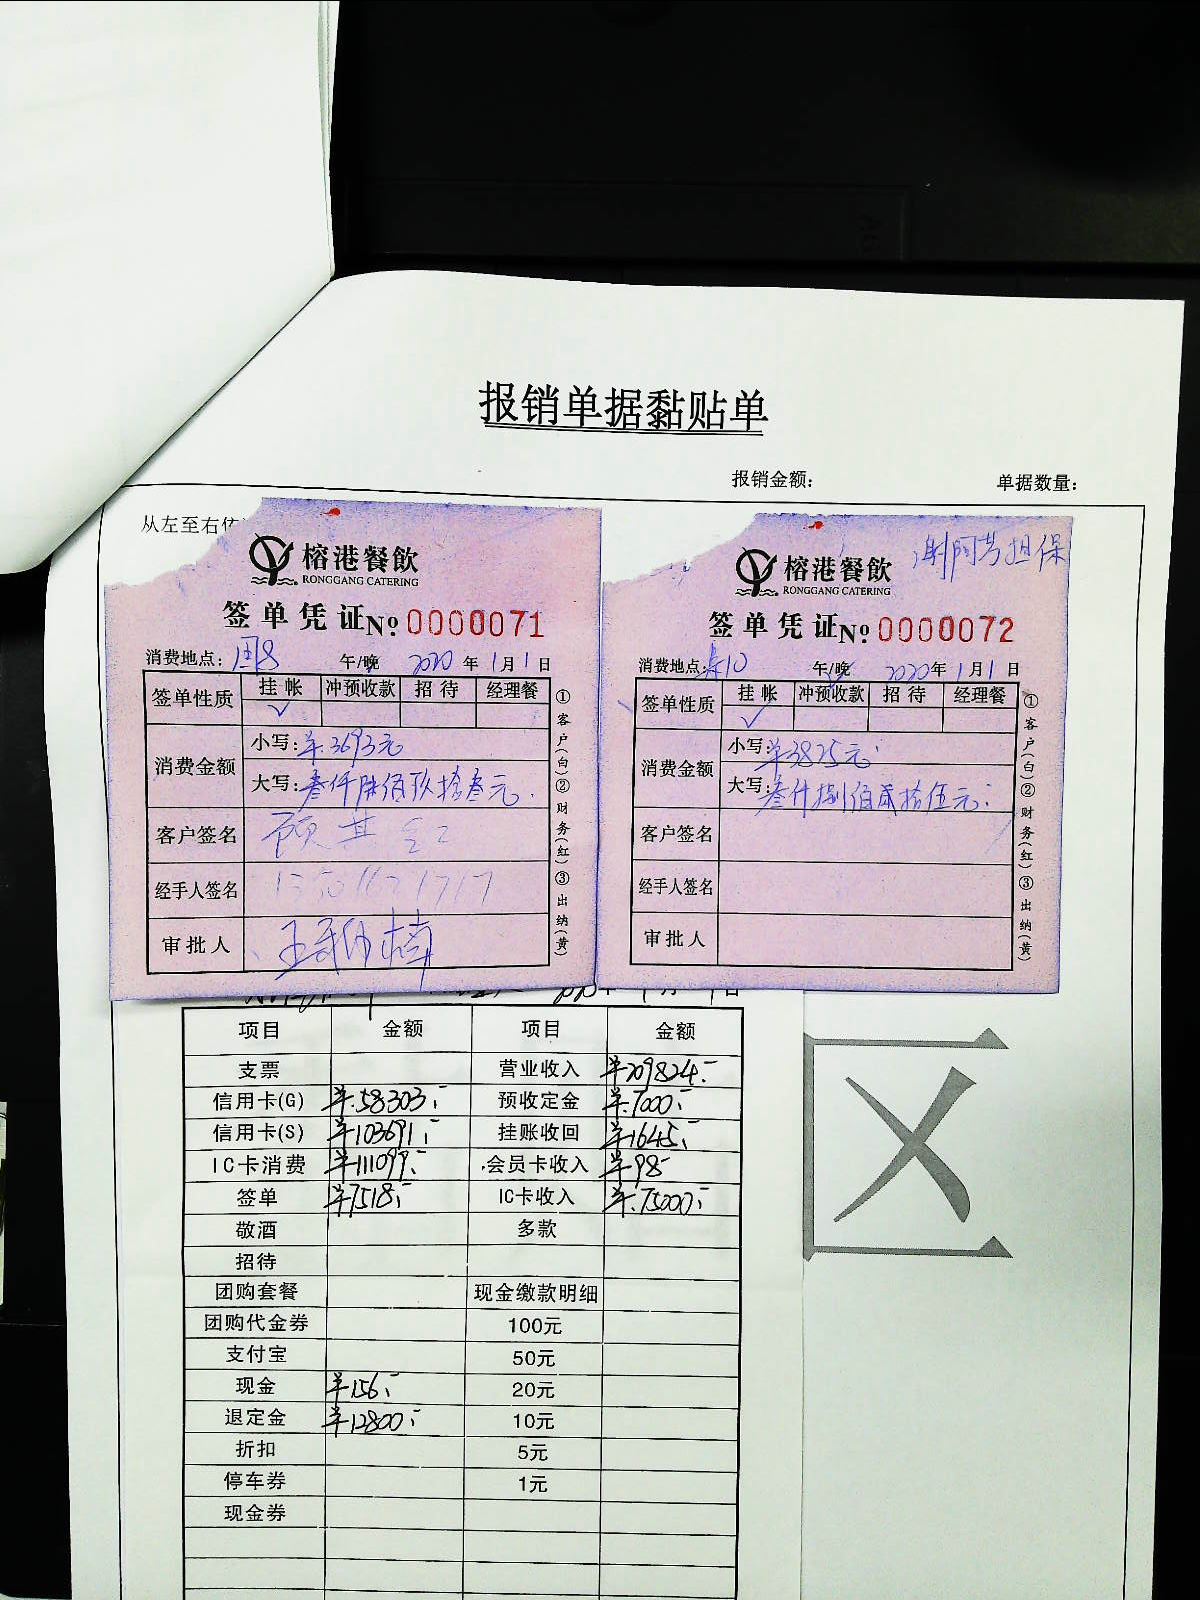 报销单据黏贴单
报销金额: 单据数量:
从左至右依
榕港餐飲
RONGGANG CATERING
签单凭证№ 0000071
消费地点: 周8 午/晚 2020年1月1日
签单性质 挂帐 冲预收款 招待 经理餐
✓
消费金额 小写: ¥3693元
大写: 叁仟陆佰玖拾叁元.
客户签名
经手人签名
审批人
①客户(白)②财务(红)③出纳(黄)
谢阿芳担保
榕港餐飲
RONGGANG CATERING
签单凭证№ 0000072
消费地点: 10 午/晚 2020年1月1日
签单性质 挂帐 冲预收款 招待 经理餐
✓
消费金额 小写: ¥3825元
大写: 叁仟捌佰贰拾伍元
客户签名
经手人签名
审批人
①客户(白)②财务(红)③出纳(黄)
项目 金额 项目 金额
支票 营业收入 ¥209824.-
信用卡(G) ¥58303.- 预收定金 ¥7000.-
信用卡(S) ¥103691.- 挂账收回 ¥1645.-
IC卡消费 ¥111099.- 会员卡收入 ¥98-
签单 ¥7518.- IC卡收入 ¥75000.-
敬酒 多款
招待
团购套餐 现金缴款明细
团购代金券 100元
支付宝 50元
现金 ¥156.- 20元
退定金 ¥12800.- 10元
折扣 5元
停车券 1元
现金券